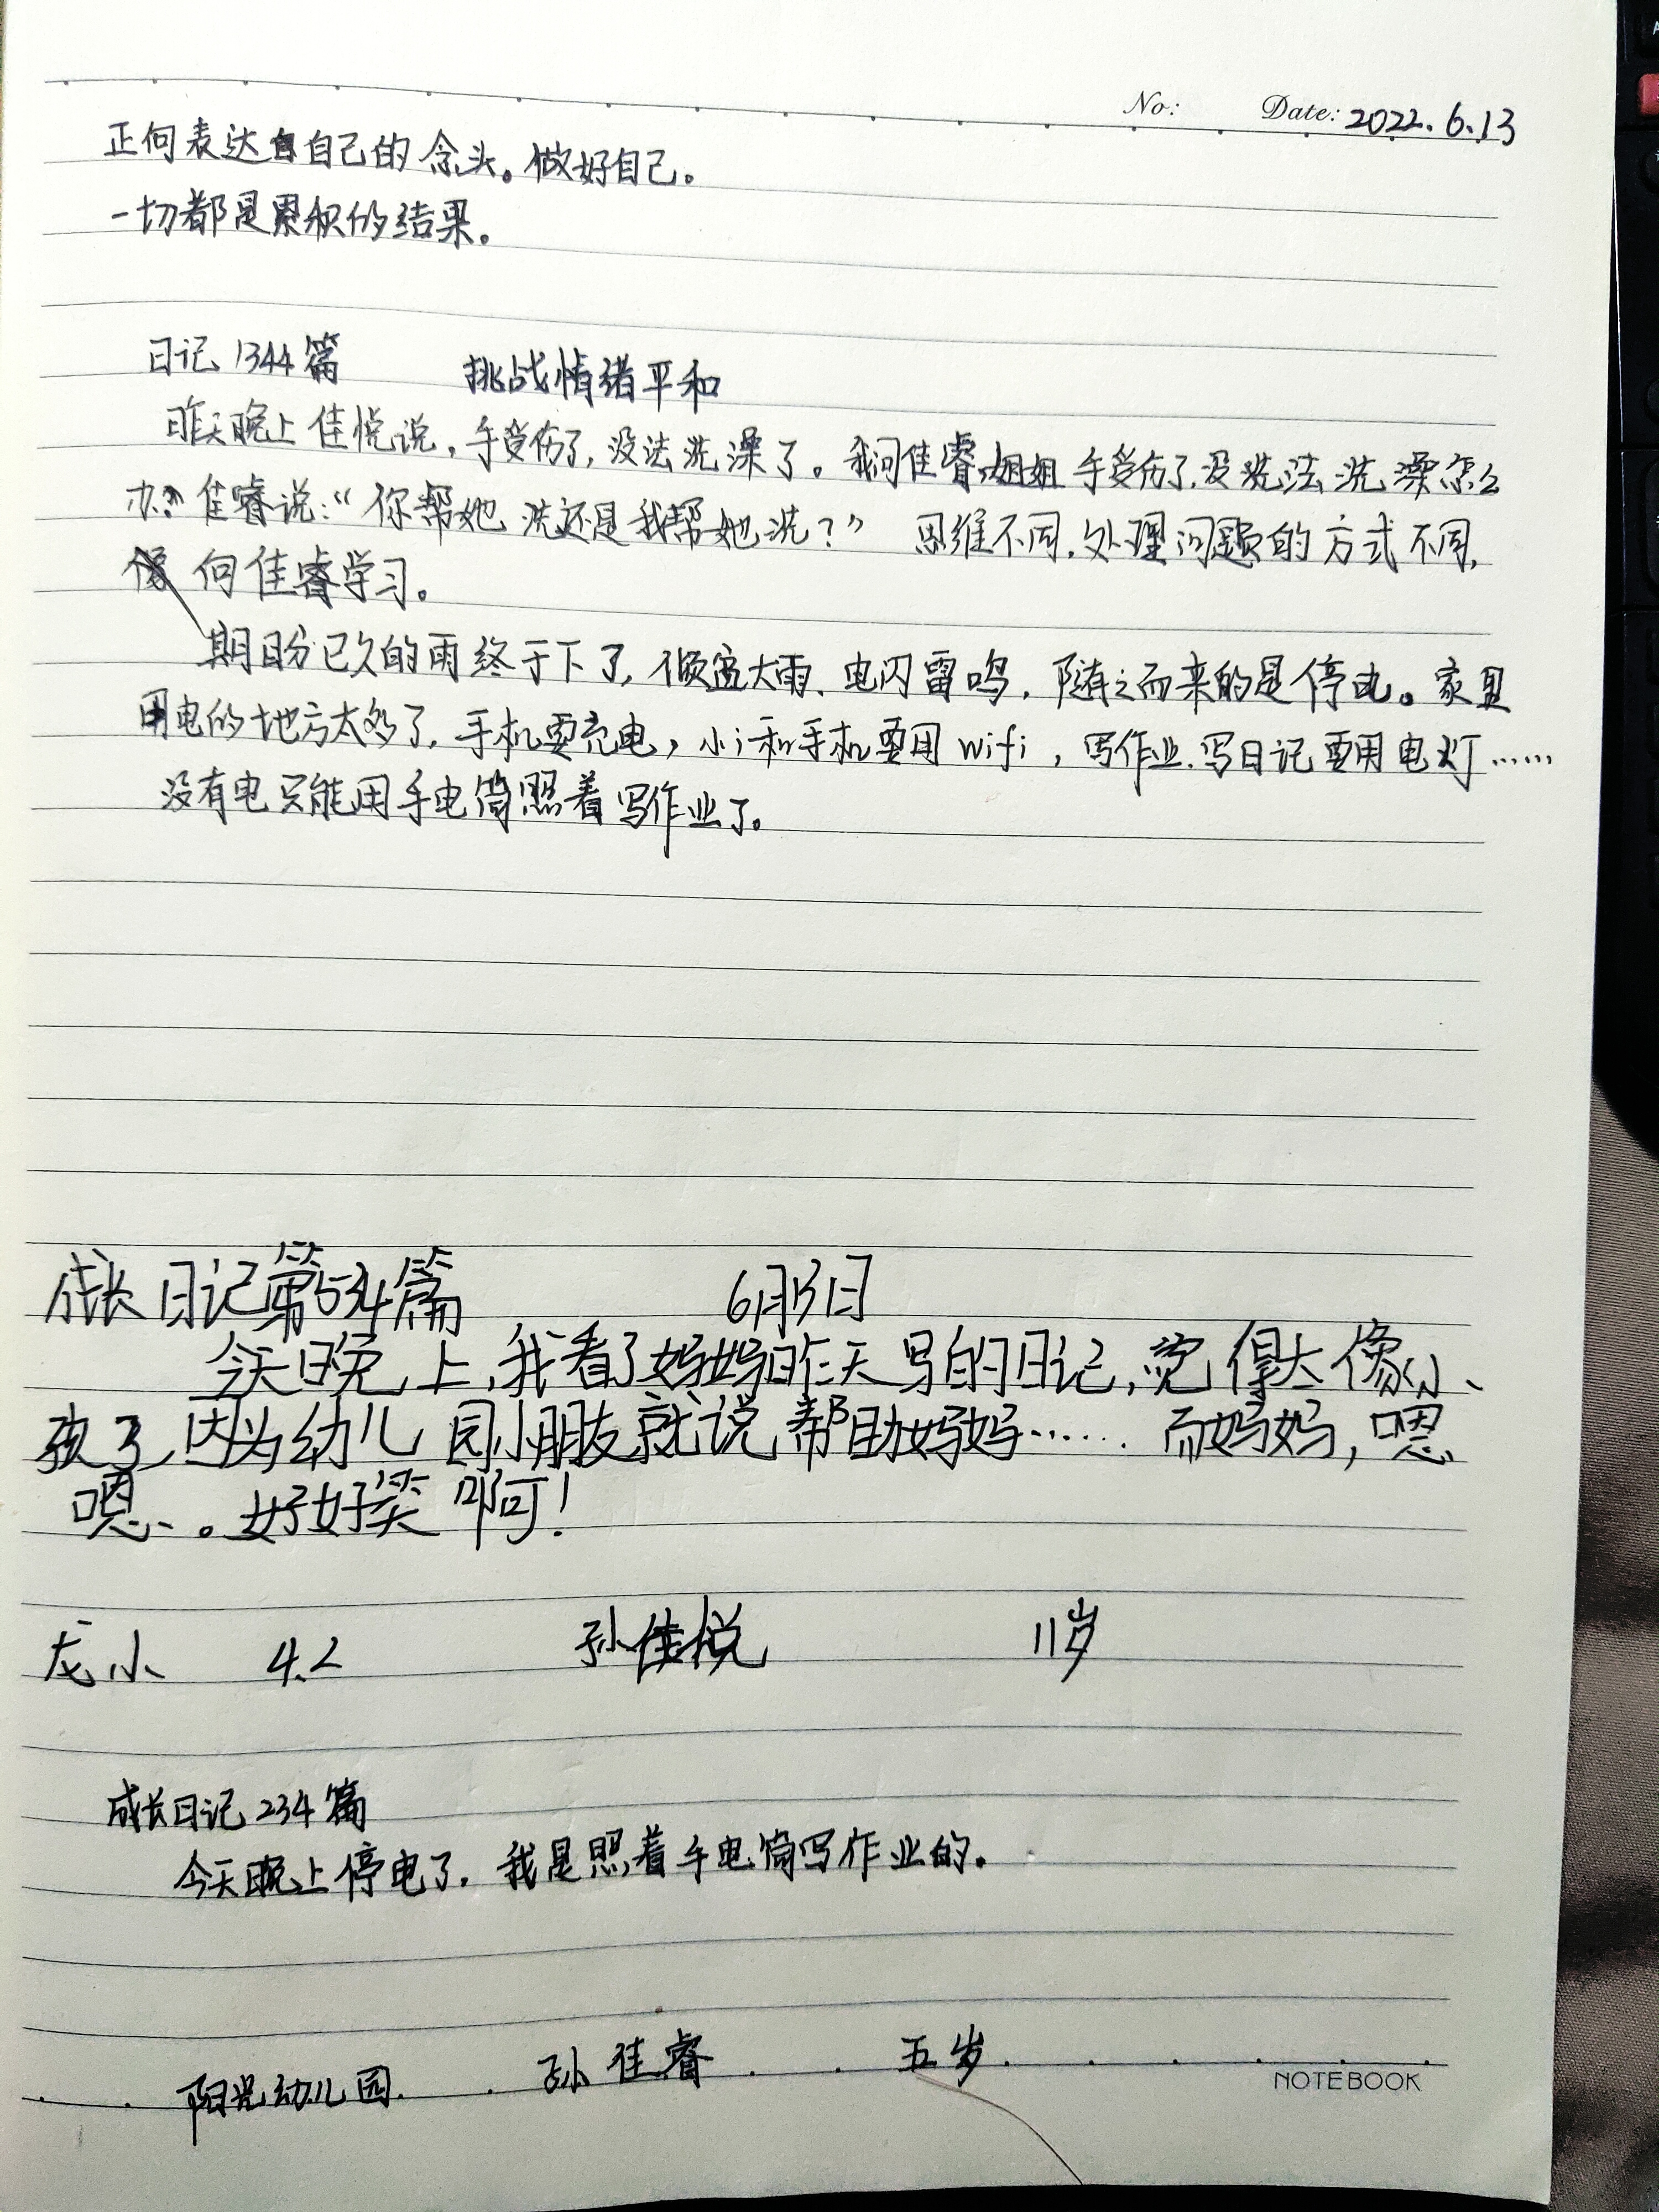 No: Date: 2022.6.13
正向表达自己的念头。做好自己。
一切都是累积的结果。
日记1344篇 挑战情绪平和
昨天晚上佳悦说,手受伤了,没法洗澡了。我问佳睿,姐姐手受伤了,没法洗澡怎么
办?佳睿说:“你帮她洗还是我帮她洗?” 思维不同,处理问题的方式不同,
向佳睿学习。
期盼已久的雨终于下了,倾盆大雨、电闪雷鸣,随之而来的是停电。家里
用电的地方太多了,手机要充电,小i和手机要用wifi,写作业、写日记要用电灯……
没有电只能用手电筒照着写作业了。
成长日记第534篇 6月13日
今天晚上,我看了妈妈昨天写的日记,觉得太像小
孩了,因为幼儿园小朋友就说帮助妈妈……而妈妈,嗯
嗯。好好笑啊!
龙小 4.2 孙佳悦 11岁
成长日记234篇
今天晚上停电了,我是照着手电筒写作业的。
阳光幼儿园 孙佳睿 五岁
NOTEBOOK